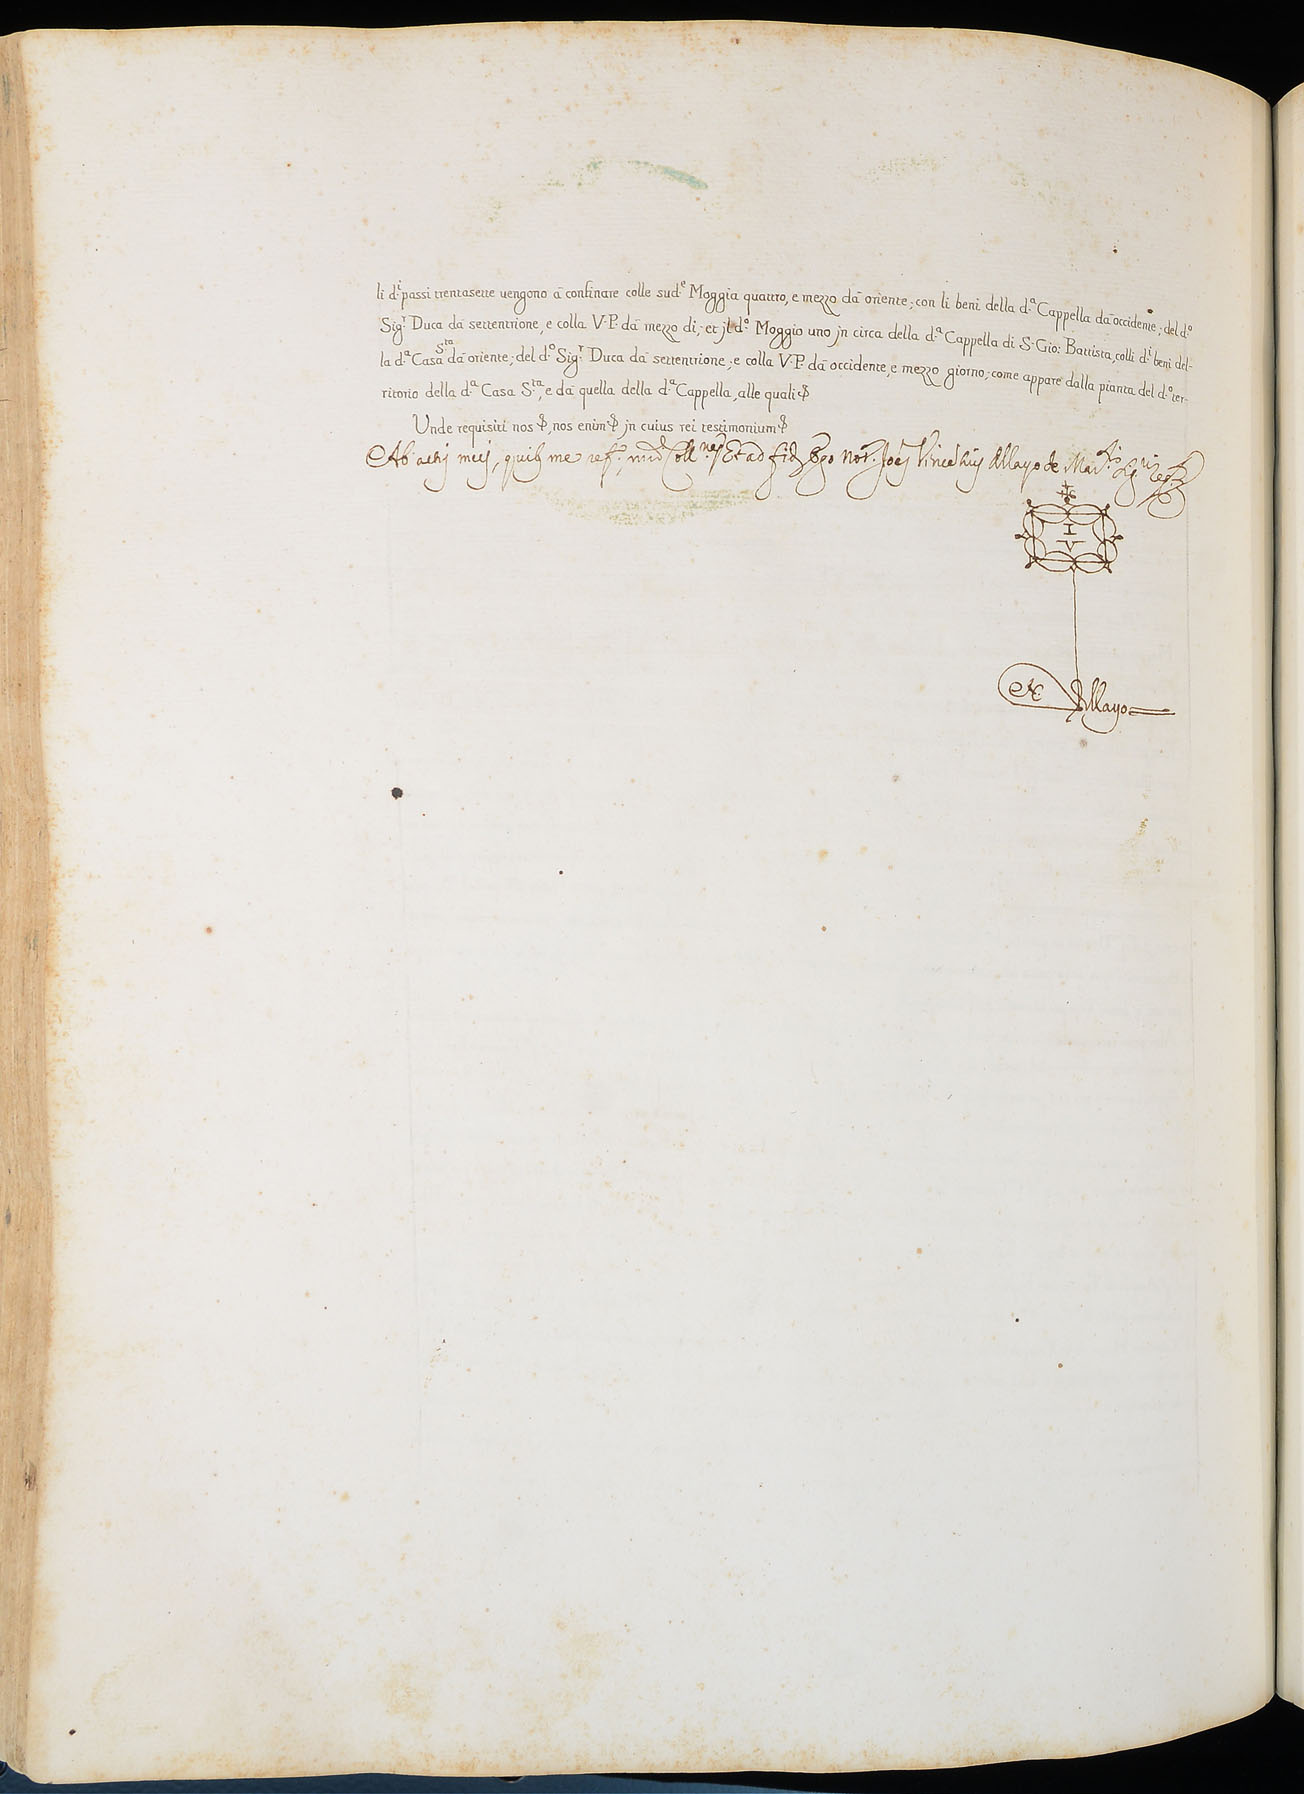 li d.ⁱ passi trentasette uengono à confinare colle sud.ᵉ Moggia quattro, e mezzo dà oriente; con li beni della d.ᵃ Cappella dà occidente; del d.º
Sig.ʳ Duca dà settentrione, e colla V. P. dà mezzo dì; et jl d.º Moggio uno jn circa della d.ᵃ Cappella di S. Gio: Battista, colli d.ⁱ beni del-
la d.ᵃ Casa S.ᵗᵃ dà oriente; del d.º Sig.ʳ Duca dà settentrione; e colla V. P. dà occidente, e mezzo giorno; come appare dalla pianta del d.º ter-
ritorio della d.ᵃ Casa S.ᵗᵃ, e dà quella della d.ᵃ Cappella, alle quali
Unde requisiti nos, nos enim jn cuius rei testimonium
Ab actis meis, quib. me ref.º Et ad fid. Ego Not. Joes Vincentius Allayo de
I
V
Allayo